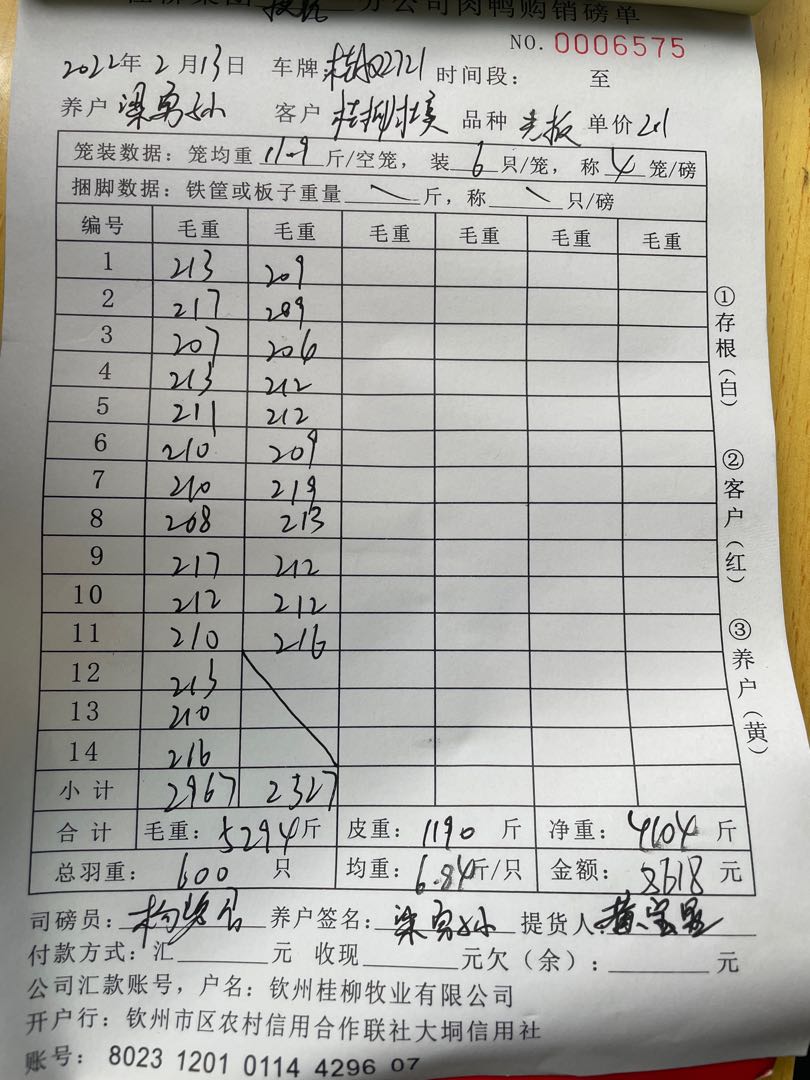 分公司肉鸭购销磅单
NO. 0006575
2022年2月13日 车牌 2721 时间段: 至
养户 梁 客户 品种 毛板 单价 2.1
笼装数据: 笼均重 11.9 斤/空笼, 装 6 只/笼, 称 4 笼/磅
捆脚数据: 铁筐或板子重量 \ 斤, 称 \ 只/磅
编号 毛重 毛重 毛重 毛重 毛重 毛重
1 213 209
2 217 209
3 207 206
4 213 212
5 211 212
6 210 209
7 210 219
8 208 213
9 217 212
10 212 212
11 210 216
12 213
13 210
14 216
小计 2967 2327
合计 毛重: 5294斤 皮重: 1190 斤 净重: 4104 斤
总羽重: 600 只 均重: 6.84斤/只 金额: 8618 元
司磅员: 养户签名: 梁 提货人: 黄
付款方式: 汇 元 收现 元欠(余): 元
公司汇款账号, 户名: 钦州桂柳牧业有限公司
开户行: 钦州市区农村信用合作联社大垌信用社
账号: 8023 1201 0114 4296 07
①存根(白)
②客户(红)
③养户(黄)